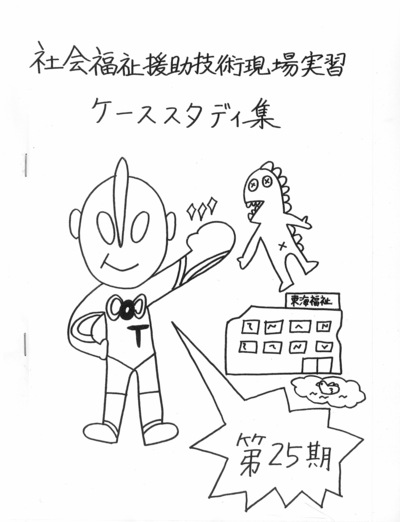 社会福祉援助技術現場実習
ケーススタディ集
T
東海福祉
第25期